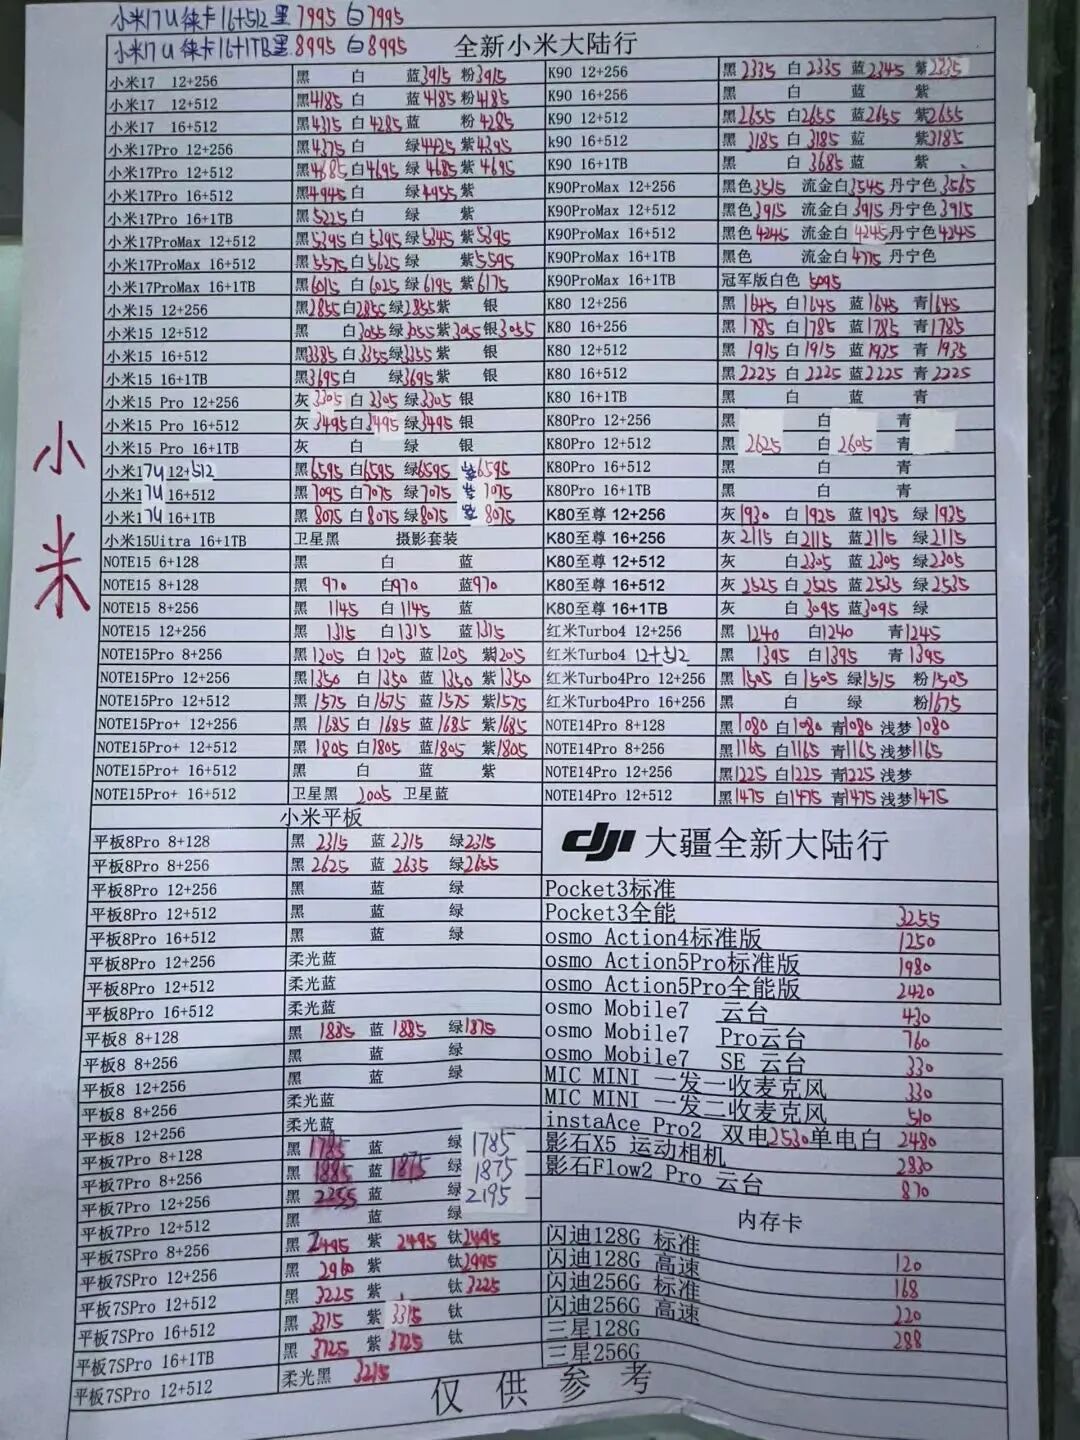 小米17U徕卡16+512黑7995 白7995
小米17U徕卡16+1TB黑8995 白8995
全新小米大陆行
小米
小米17 12+256 黑 白 蓝3915 粉3915
小米17 12+512 黑4185 白 蓝4185 粉4185
小米17 16+512 黑4315 白4285 蓝 粉4285
小米17Pro 12+256 黑4375 白 绿4425 紫4395
小米17Pro 12+512 黑4685 白4695 绿4685 紫4695
小米17Pro 16+512 黑4945 白 绿4955 紫
小米17Pro 16+1TB 黑5225 白 绿 紫
小米17ProMax 12+512 黑5395 白5395 绿5345 紫5395
小米17ProMax 16+512 黑5575 白5625 绿 紫5595
小米17ProMax 16+1TB 黑6015 白6025 绿6195 紫6175
小米15 12+256 黑2855 白2855 绿2855 紫 银
小米15 12+512 黑 白3055 绿3055 紫3055 银3055
小米15 16+512 黑3385 白3355 绿3355 紫 银
小米15 16+1TB 黑3695 白 绿3695 紫 银
小米15 Pro 12+256 灰3305 白3305 绿3305 银
小米15 Pro 16+512 灰3495 白3495 绿3495 银
小米15 Pro 16+1TB 灰 白 绿 银
小米17U 12+512 黑6595 白6595 绿6595 紫6595
小米17U 16+512 黑7095 白7075 绿7075 紫7075
小米17U 16+1TB 黑8075 白8075 绿8075 紫8075
小米15Uitra 16+1TB 卫星黑 摄影套装
NOTE15 6+128 黑 白 蓝
NOTE15 8+128 黑970 白970 蓝970
NOTE15 8+256 黑1145 白1145 蓝
NOTE15 12+256 黑1315 白1315 蓝1315
NOTE15Pro 8+256 黑1205 白1205 蓝1205 紫1205
NOTE15Pro 12+256 黑1350 白1350 蓝1350 紫1350
NOTE15Pro 12+512 黑1575 白1575 蓝1575 紫1575
NOTE15Pro+ 12+256 黑1685 白1685 蓝1685 紫1685
NOTE15Pro+ 12+512 黑1805 白1805 蓝1805 紫1805
NOTE15Pro+ 16+512 黑 白 蓝 紫
NOTE15Pro+ 16+512 卫星黑 2005 卫星蓝
小米平板
平板8Pro 8+128 黑2315 蓝2315 绿2315
平板8Pro 8+256 黑2625 蓝2635 绿2655
平板8Pro 12+256 黑 蓝 绿
平板8Pro 12+512 黑 蓝 绿
平板8Pro 16+512 黑 蓝 绿
平板8Pro 12+256 柔光蓝
平板8Pro 12+512 柔光蓝
平板8Pro 16+512 柔光蓝
平板8 8+128 黑1885 蓝1885 绿1875
平板8 8+256 黑 蓝 绿
平板8 12+256 黑 蓝 绿
平板8 8+256 柔光蓝
平板8 12+256 柔光蓝
平板7Pro 8+128 黑1785 蓝 绿1785
平板7Pro 8+256 黑1885 蓝1875 绿1875
平板7Pro 12+256 黑2255 蓝 绿2195
平板7Pro 12+512 黑 蓝 绿
平板7SPro 8+256 黑2495 紫2495 钛2495
平板7SPro 12+256 黑2960 紫 钛2995
平板7SPro 12+512 黑3225 紫 钛3225
平板7SPro 16+512 黑3315 紫3315 钛
平板7SPro 16+1TB 黑3725 紫3725 钛
平板7SPro 12+512 柔光黑 3215
K90 12+256 黑2335 白2335 蓝2345 紫2335
K90 16+256 黑 白 蓝 紫
K90 12+512 黑2655 白2655 蓝2655 紫2655
k90 16+512 黑3185 白3185 蓝 紫3185
K90 16+1TB 黑 白3685 蓝 紫
K90ProMax 12+256 黑色3515 流金白3545 丹宁色3565
K90ProMax 12+512 黑色3915 流金白3915 丹宁色3915
K90ProMax 16+512 黑色4245 流金白4245 丹宁色4245
K90ProMax 16+1TB 黑色 流金白4775 丹宁色
K90ProMax 16+1TB 冠军版白色 5095
K80 12+256 黑1645 白1645 蓝1645 青1645
K80 16+256 黑1785 白1785 蓝1785 青1785
K80 12+512 黑1915 白1915 蓝1935 青1935
K80 16+512 黑2225 白2225 蓝2225 青2225
K80 16+1TB 黑 白 蓝 青
K80Pro 12+256 黑 白 青
K80Pro 12+512 黑2625 白2605 青
K80Pro 16+512 黑 白 青
K80Pro 16+1TB 黑 白 青
K80至尊 12+256 灰1930 白1925 蓝1935 绿1935
K80至尊 16+256 灰2115 白2115 蓝2115 绿2115
K80至尊 12+512 灰 白2305 蓝2305 绿2305
K80至尊 16+512 灰2525 白2525 蓝2535 绿2535
K80至尊 16+1TB 灰 白3095 蓝3095 绿
红米Turbo4 12+256 黑1240 白1240 青1245
红米Turbo4 12+512 黑1395 白1395 青1395
红米Turbo4Pro 12+256 黑1505 白1505 绿1515 粉1505
红米Turbo4Pro 16+256 黑 白 绿 粉1675
NOTE14Pro 8+128 黑1080 白1080 青1080 浅梦1080
NOTE14Pro 8+256 黑1165 白1165 青1165 浅梦1165
NOTE14Pro 12+256 黑1225 白1225 青1225 浅梦
NOTE14Pro 12+512 黑1475 白1475 青1475 浅梦1475
dji 大疆全新大陆行
Pocket3标准
Pocket3全能 3255
osmo Action4标准版 1250
osmo Action5Pro标准版 1980
osmo Action5Pro全能版 2420
osmo Mobile7 云台 430
osmo Mobile7 Pro云台 760
osmo Mobile7 SE 云台 330
MIC MINI 一发一收麦克风 330
MIC MINI 一发二收麦克风 510
instaAce Pro2 双电2530单电白 2480
影石X5 运动相机 2830
影石Flow2 Pro 云台 870
内存卡
闪迪128G 标准 120
闪迪128G 高速 168
闪迪256G 标准 220
闪迪256G 高速 288
三星128G
三星256G
仅供参考